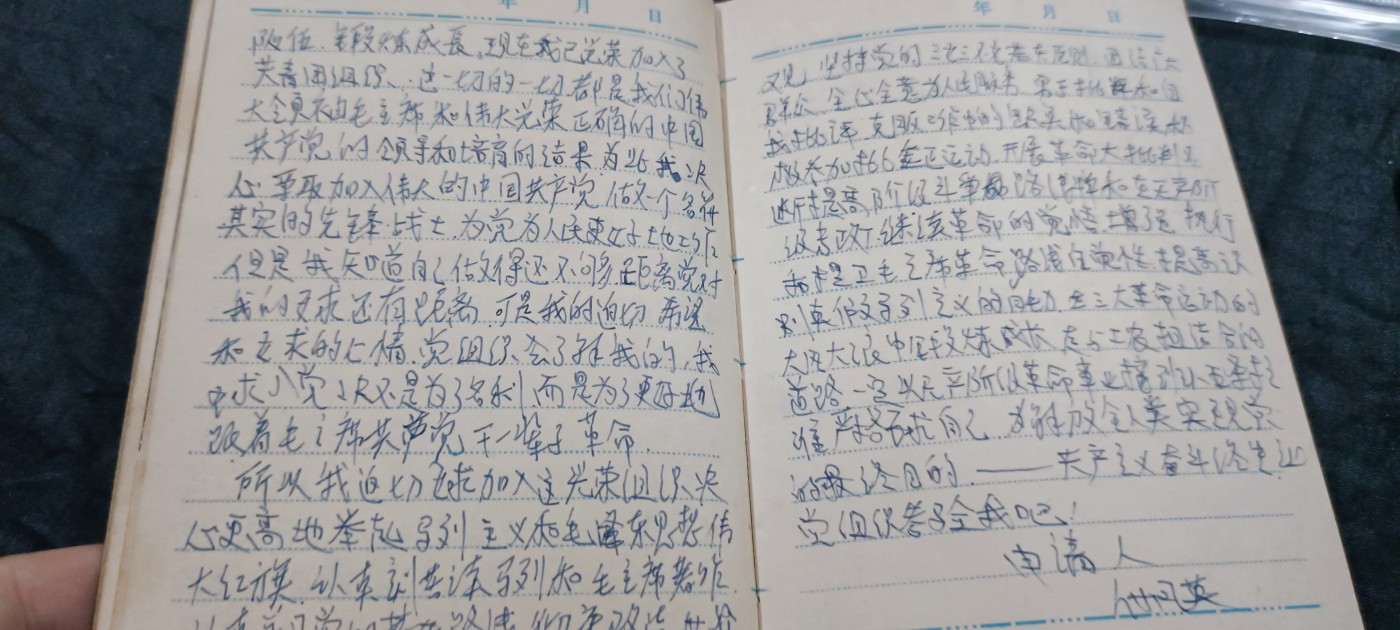 年 月 日
队伍、锻炼成长。现在我已光荣加入了
共青团组织、这一切的一切都是我们伟
大领袖毛主席和伟大光荣正确的中国
共产党的领导和培育的结果 为此我决
心 争取加入伟大的中国共产党 做一个名符
其实的先锋战士、为党为人民更好地工作
但是我知道自己做得还不够 距离党对
我的要求还有距离 可是我的迫切希望
和立求的心情、党组织会了解我的、我
要求入党决不是为了名利 而是为了更好地
跟着毛主席共产党干一辈子革命.
所以我迫切要求加入这光荣组织 决
心更高地举起马列主义和毛泽东思想伟
大红旗. 认真刻苦读马列和毛主席著作
年 月 日
坚持党的三要三不要基本原则 团结广大
群众 全心全意为人民服务 勇于批评和自
我批评 克服工作中的缺点和错误 积
极参加批林整风运动 开展革命大批判 不
断提高阶级斗争 路线斗争和无产阶
级专政下继续革命的觉悟 增强执行
和捍卫毛主席革命路线自觉性 提高识
别真假马列主义的能力 在三大革命运动的
大风大浪中锻炼成长 走与工农相结合的
道路 一定以无产阶级革命事业接班人五条标
准严格要求自己 为解放全人类 实现党
的最终目的 —— 共产主义奋斗终生
党组织考验我吧!
申请人